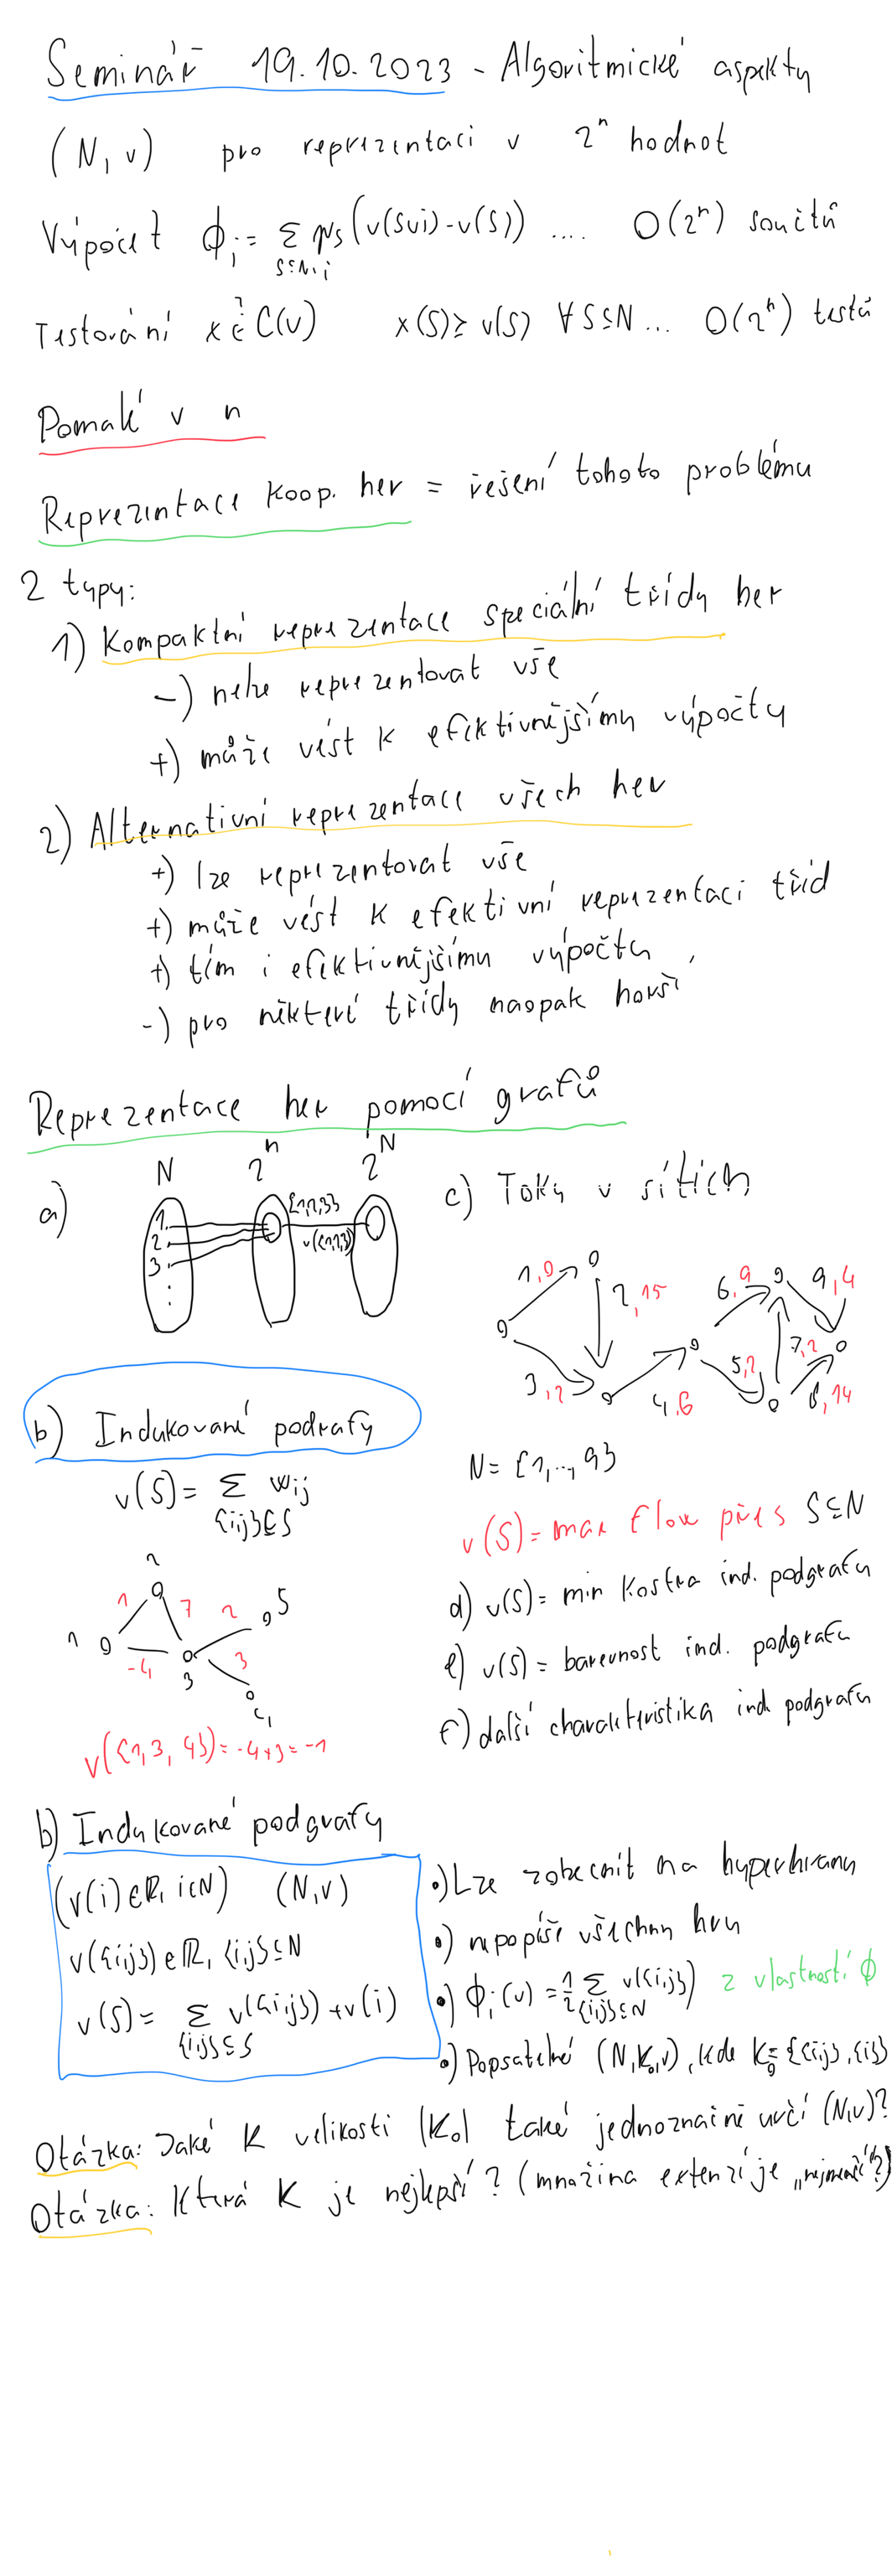 Seminář 19.10.2023 - Algoritmické aspekty
(N, v) pro reprezentaci v 2^n hodnot
Výpočet ϕ_i = Σ_{S⊆N\i} γ_S (v(S∪i)-v(S)) .... O(2^n) součtů
Testování x ∈? C(v) x(S) ≥ v(S) ∀S⊆N ... O(2^n) testů
Pomalé v n
Reprezentace koop. her = řešení tohoto problému
2 typy:
1) Kompaktní reprezentace speciální třídy her
-) nelze reprezentovat vše
+) může vést k efektivnějšímu výpočtu
2) Alternativní reprezentace všech her
+) lze reprezentovat vše
+) může vést k efektivní reprezentaci tříd
+) tím i efektivnějšímu výpočtu
-) pro některé třídy naopak horší
Reprezentace her pomocí grafů
a) N 2^n 2^N
1
2
3
{1,2,3}
v({1,2,3})
b) Indukované podrafy
v(S) = Σ_{{i,j}⊆S} w_ij
2
1 7 2 5
1 -4 3 3
4
v({1,3,4}) = -4+3 = -1
c) Toky v sítích
1,9 2,15 6,9 9,4
3,2 4,6 5,2 7,2 8,14
N = {1,..,9}
v(S) = max flow přes S⊆N
d) v(S) = min kostra ind. podgrafu
e) v(S) = barevnost ind. podgrafu
f) další charakteristika ind. podgrafu
b) Indukované podgrafy
(v(i)∈ℝ, i∈N) (N,v)
v({i,j})∈ℝ, {i,j}⊆N
v(S) = Σ_{{i,j}⊆S} v({i,j}) + v(i)
•) Lze zobecnit na hyperhrany
•) nepopíše všechny hry
•) ϕ_i(v) = 1/2 Σ_{{i,j}⊆N} v({i,j}) z vlastností ϕ
•) Popsatelné (N,K_0,v), kde K_0 = {{i,j},{i}}
Otázka: Jaké K velikosti |K_0| také jednoznačně určí (N,v)?
Otázka: Která K je nejlepší? (množina extenzí je „nejmenší"?)